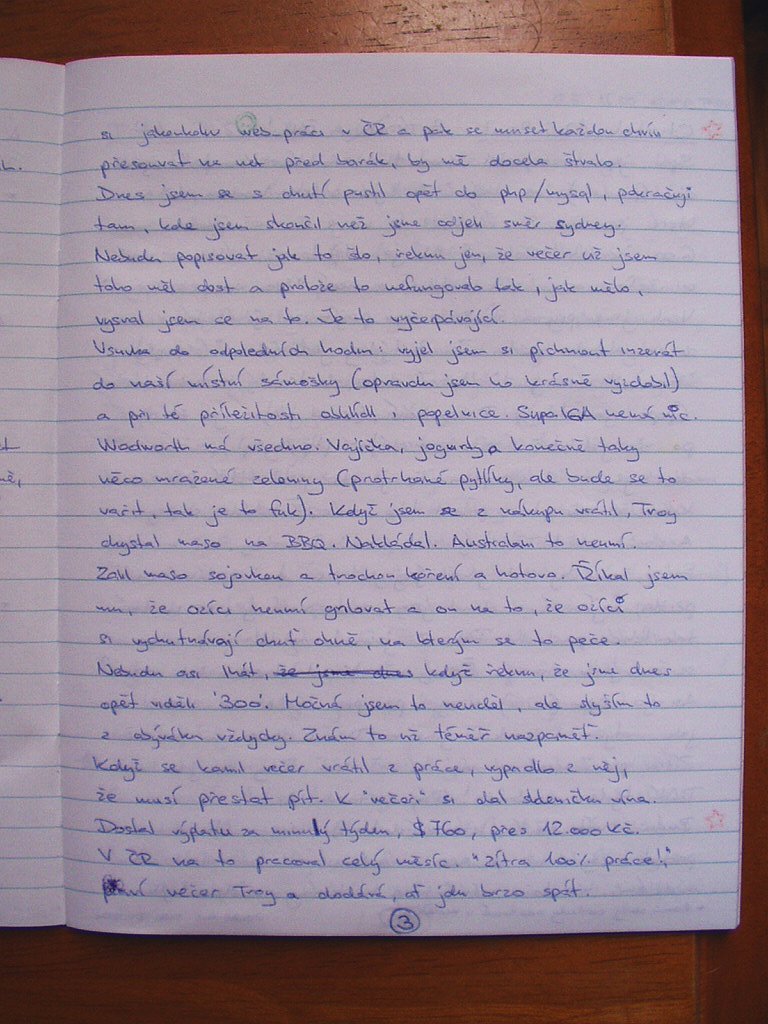 si jakoukoliv web-práci v ČR a pak se muset každou chvíli
přesouvat na net před barák, by mě docela štvalo.
L.
Dnes jsem se s chutí pustil opět do php/mysql, pokračuji
tam, kde jsem skončil než jsme odjeli směr Sydney.
Nebudu popisovat jak to šlo, řeknu jen, že večer už jsem
toho měl dost a protože to nefungovalo tak, jak mělo,
vysral jsem se na to. Je to vyčerpávající.
Vsuvka do odpoledních hodin: vyjel jsem si píchnout inzerát
do naší místní sámošky (opravdu jsem ho krásně vyzdobil)
a při té příležitosti obhlídl i popelnice. Supa IGA nemá nic.
Woolworth má všechno. Vajíčka, jogurty a konečně taky
něco mražené zeleniny (protrhané pytlíky, ale bude se to
vařit, tak je to fuk). Když jsem se z nákupu vrátil, Troy
chystal maso na BBQ. Nakládal. Australani to neumí.
Zalil maso sojovkou a trochou koření a hotovo. Říkal jsem
mu, že ozíci neumí grilovat a on na to, že ozíci
si vychutnávají chuť ohně, na kterým se to peče.
Nebudu asi lhát, že jsme dnes když řeknu, že jsme dnes
opět viděli '300'. Možná jsem to neviděl, ale slyším to
z obýváku vždycky. Znám to už téměř nazpaměť.
Když se Kamil večer vrátil z práce, vypadlo z něj,
že musí přestat pít. K "večeři" si dal skleničku vína.
Dostal výplatu za minulý týden, $760, přes 12.000 Kč.
V ČR na to pracoval celý měsíc. "Zítra 100% práce!"
praví večer Troy a dodává, ať jdu brzo spát.
3